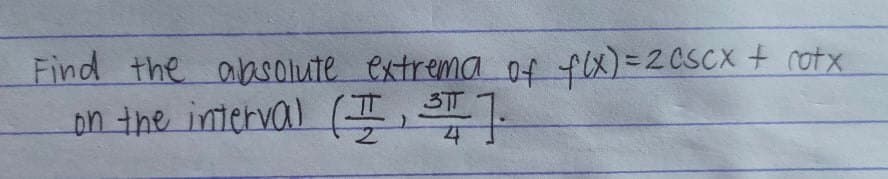 Find the absolute extrema of f(x)=2cscx + cotx
on the interval (π/2, 3π/4].